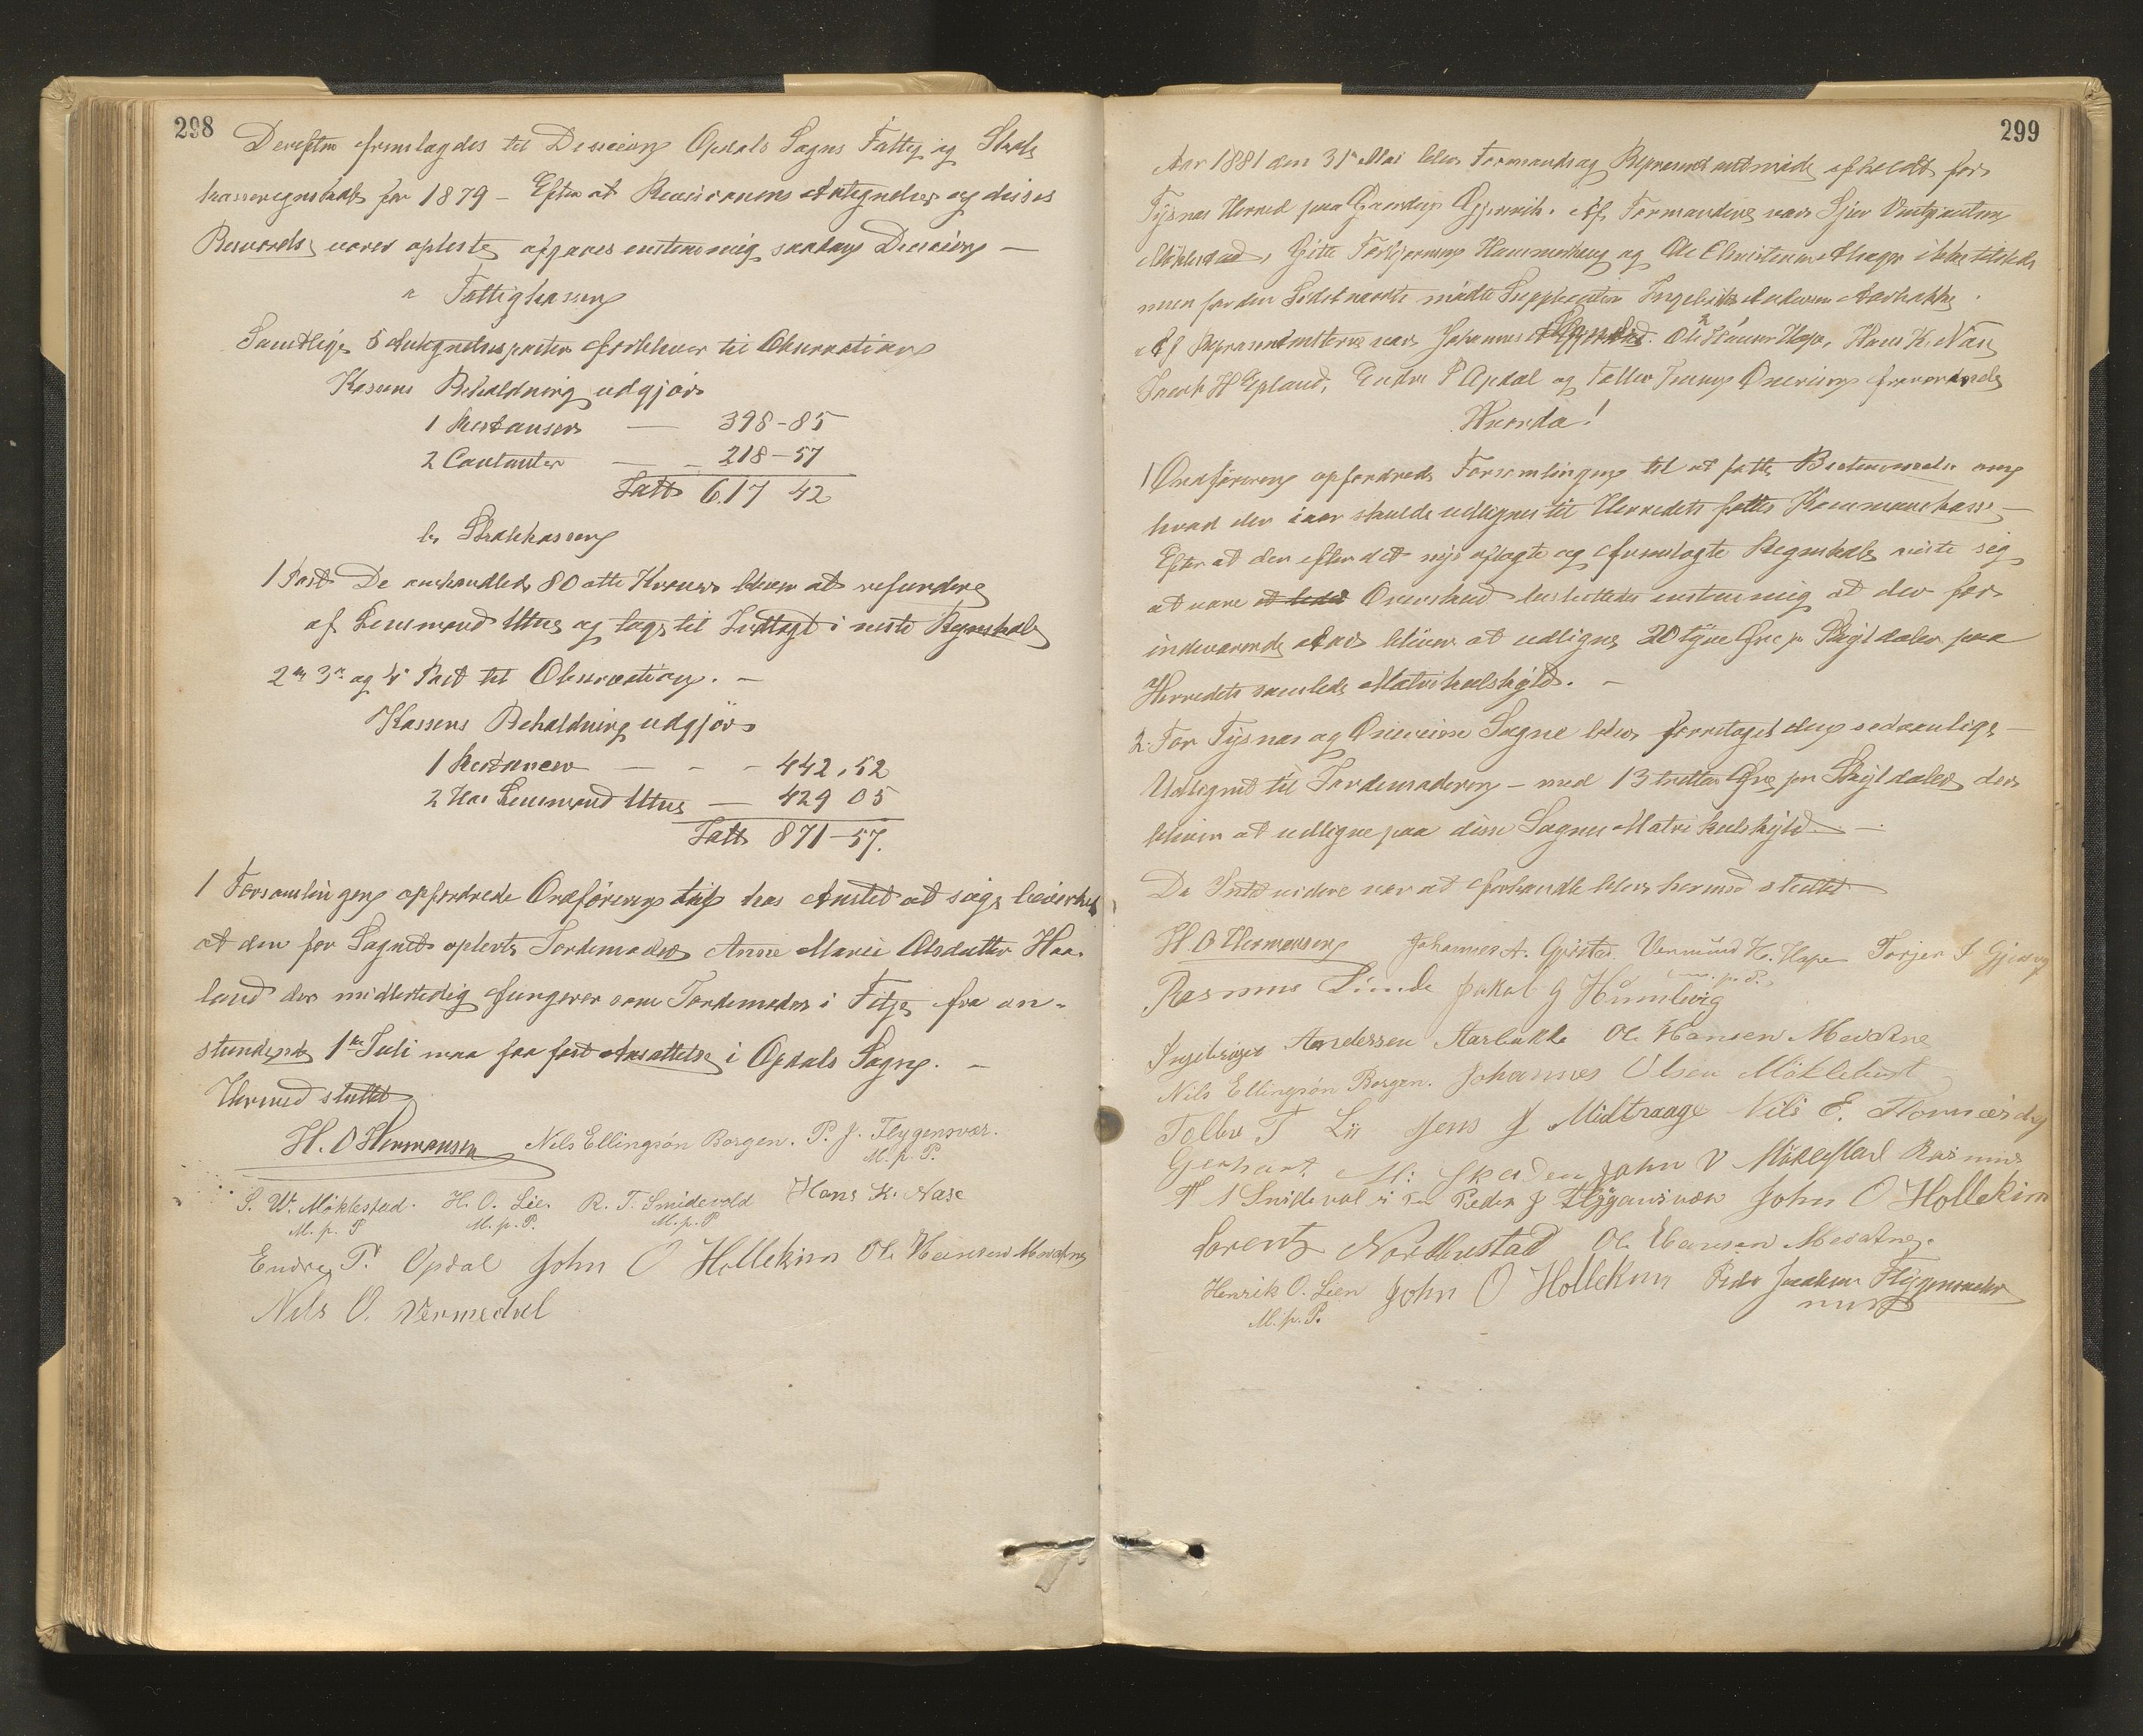 298
Derefter fremlagdes til Decision Opdals Sogns Fattig og Skole
kasseregnskab for 1879 – Efter at Revisionens Antegnelser og disses
Besvarelse varer opleste afgaves enstemmig saadan Decision –
a Fattigkassen
Samtlige 5 Antegnelsesposter forbliver til Observation
Kassens Beholdning udgjør
1 Restanser — 398-85
2 Contanter — – 218-57
Tatt 617 42
b, Skolekassen
1 Post De omhandlede 80 otte Kroner bliver at refundere
af Lensmand Uttne og tages til Indtægt i neste Regnskab
2en 3e og 4e Post til Observation. –
Kassens Beholdning udgjør
1 Restancer – – – 442,52
2 Hos Lensmand Uttne — 429 05
Tatt 871-57.
1 Forsamlingen opfordrede Ordføreren til hos Amtet at søge bevirket
at den for Sognet oplerte Jordemoder Anne Marie Olsdatter Haa-
land der midlertidig fungerer som Jordemoder i Fitje fra an-
stundende 1ste Juli maa faa fast Ansættelse i Opdals Sogn. –
Hermed sluttet
H. O Hermansen Nils Ellingsön Borgen. P. J. Flygensvær.
M. p. P.
S. W. Möklestad. H. O. Lien R. T. Smidevold Hans K. Nase
M. p. P M. p. P. M. p. P
Endre P. Opdal John O Hollekim Ole Hansen Mevatne
Nils O. Vermedal
299
Aar 1881 den 31te Mai blev Formands og Representantmøde afholdt for
Tysnæs Herred paa Gaarden Gjersvik. Af Formændene var Sjur Vintjentsen
Möklestad, Gitle Torbjørnsen Hammerhaug og Ole Christensen Drage ikke tilstede
men for den Sidstnævnte mødte Suppleanten Ingebrikt Andersen Aarbakke.
Af Representanterne var Johannes Ole Hansen Hope, Hans K. Næs
H Epland, Endre P Opdal og Tollev Onarheim fraværende
Hvorda!
1 Ordføreren opfordrede Forsamlingen til at fatte Bestemmelse om
hvad der iaar skulde udlignes til Herredets fælles Kommunekasse, –
Efter at der efter det nys aflagte og fremlagte Regnskab viste sig
at være Overskud besluttedes enstemmig at der for
indeværende Aar bliver at udligne 20 tyve Øre pr Skylddaler paa
Herredets samlede Matrikulskyld. –
2. For Tysnæs og Onarheim Sogne blev foretaget den sedvanlige –
Udligned til Jordemoderen – med 13 tretten Øre pr Skylddaler der
bliver at udligne paa disse Sognes Matrikulskyld –
Da Intet videre var at forhandle blev hermed sluttet
H. O Hermansen Johannes A. Gjerstad. Vermund H. Hope Torjer J Gjersvig
m. p. P.
Rasmus Lunde Jakob G Humlevig
Ingebrigt Andersen Aarbakke Ole Hansen Mevatne
Nils Ellingsön Borgen. Johannes Olsen Möklebust
Tollev T Lie Jens J Midtraage Nils E. Hornæsdal
Gerhart M. Skaden John V Möklestad Rasmus
T Smidevol Peder J Flygansvær John O Hollekim
Lorentz Nordhustad Ole Hansen Mevatne.
Henrik O. Lien John O Hollekim Peder Joachim Flygensvær
M. p. P. m p P